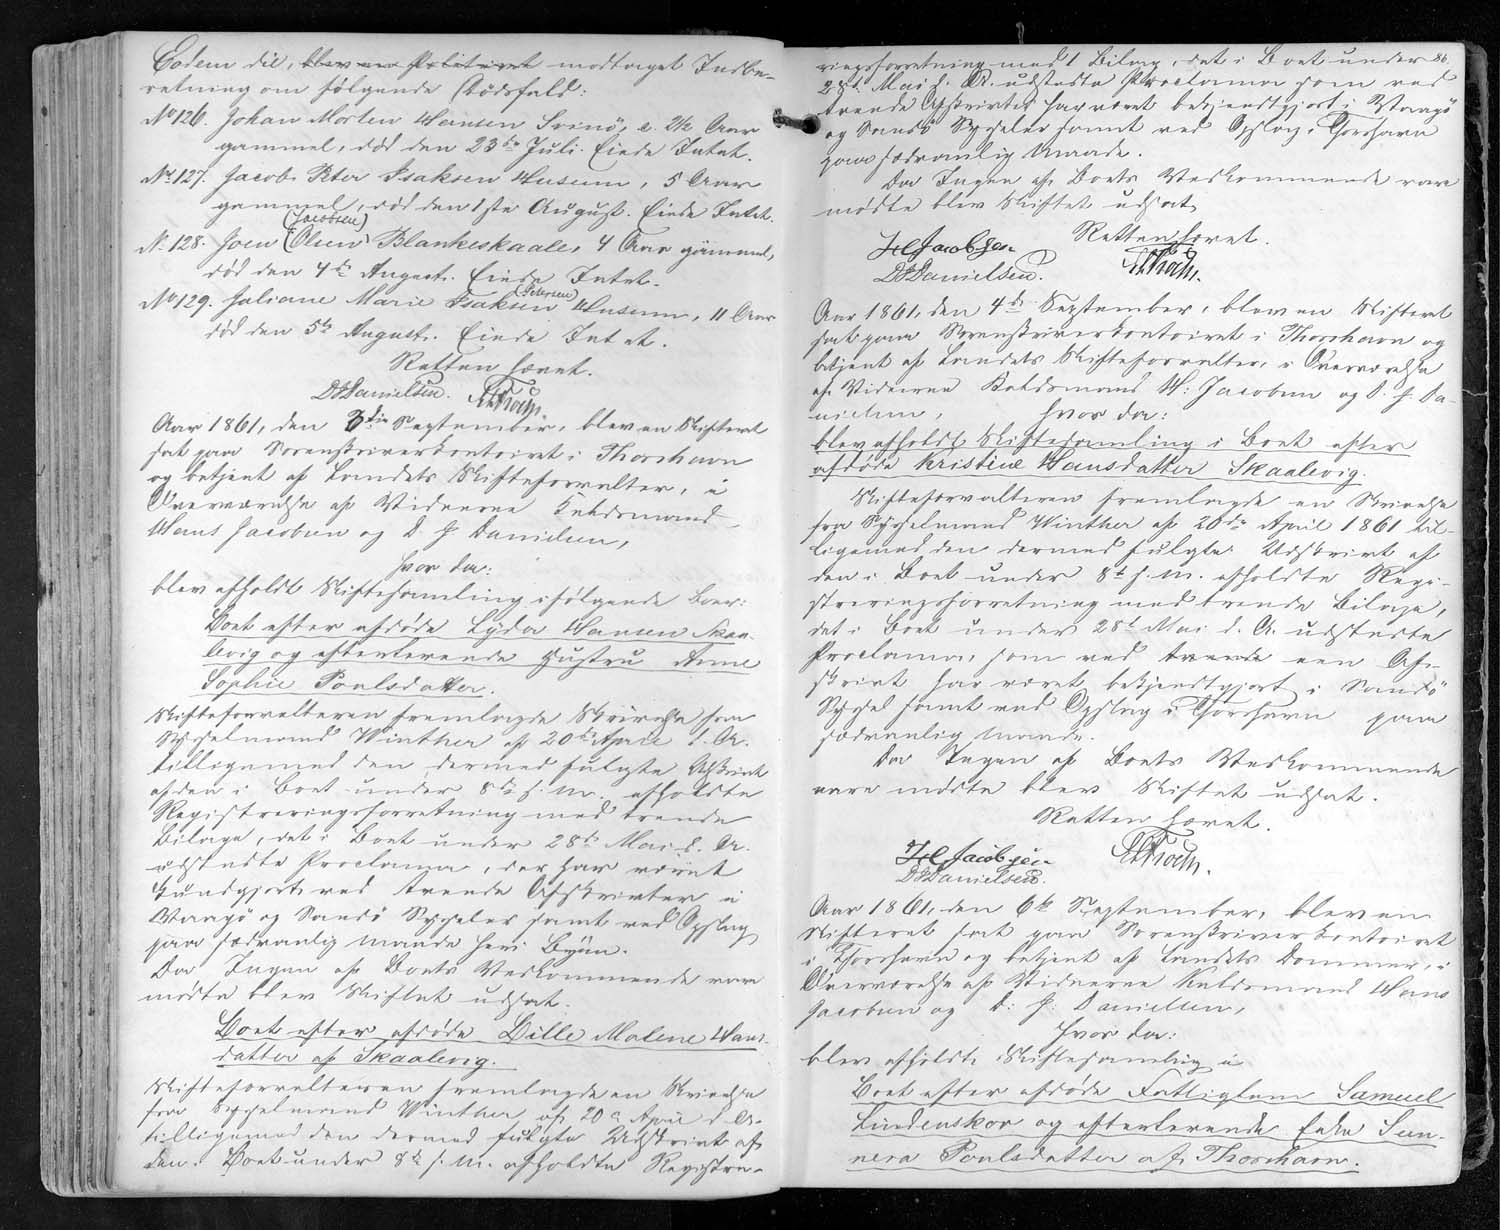 Eodem die, blev en Politiret modtaget Indbe-
retning om følgende Dødsfald:
No 126. Johan Morten Hansen Svinø, c. 2½ Aar
gammel, død den 23de Juli. Eiede Intet.
No 127. Jacob Peter Isaksen Husum, 5 Aar
gammel, død den 1ste August. Eiede Intet.
(Jacobsen)
No 128. Joen "Olsen" Blankeskaale, 4 Aar gammel,
død den 4de August. Eiede Intet.
(Petersen)
No 129. Juliane Marie Isaksen Husum, 11 Aar
død den 5te August. Eiede Intet.
Retten hævet.
DJDanielsen. HCKoch.
Aar 1861, den 3die September, blev en Skifteret
sat paa Sorenskriverkontoiret i Thorshavn
og betjent af Landets Skifteforvalter, i
Overværelse af Vidnerne Knudsmand
Hans Jacobsen og D. J. Danielsen,
hvor da:
blev afholdt Skiftesamling i følgende Boer:
Boet efter afdøde Lyder Hansen Skaa-
levig og efterlevende Hustru Anne
Sophie Poulsdatter.
Skifteforvalteren fremlagde Skrivelse fra
Sysselmand Winther af 20de April d. A.
tilligemed den dermed fulgte Udskrivt
af den i Boet under 8de s. M. afholdte
Registreringsforretning med trende
Bilage, det i Boet under 28de Mai d. A.
udstedte Proclama, der har været
kundgjort ved trende Afskrivter i
Vaagø og Sandø Sysseler samt ved Opslag
paa sædvanlig Maade her i Byen.
Da Ingen af Boets Vedkommende vare
mødte blev Skiftet udsat.
Boet efter afdøde Bille Malene Hans-
datter af Skaalevig.
Skifteforvalteren fremlagde en Skrivelse
fra Sysselmand Winther af 20de April d. A.
tilligemed den dermed fulgte Udskrivt af
den i Boet under 8de s. M. afholdte Registre-
ringsforretning med 1 Bilag, det i Boet under 86.
28de Mai d. A. udstedte Proclama som ved
trende Afskrivter har været bekjendtgjort i Vaagø
og Sandø Sysseler samt ved Opslag i Thorshavn
paa sædvanlig Maade.
Da Ingen af Boets Vedkommende vare
mødte blev Skiftet udsat.
Retten hævet.
HC Jacobsen HCKoch.
DJDanielsen.
Aar 1861, den 4de September, blev en Skifteret
sat paa Sorenskriverkontoiret i Thorshavn og
betjent af Landets Skifteforvalter, i Overværelse
af Vidnerne Knudsmand H. Jacobsen og D. J. Da-
nielsen, hvor da:
blev afholdt Skiftesamling i Boet efter
afdøde Kristine Hansdatter Skaalevig.
Skifteforvalteren fremlagde en Skrivelse
fra Sysselmand Winther af 20de April 1861 til-
ligemed den dermed fulgte Udskrivt af
den i Boet under 8de s. M. afholdte Regi-
streringsforretning med trende Bilage,
det i Boet under 28de Mai d. A. udstedte
Proclama, som ved trende een Af-
skrivt har været bekjendtgjort i Sandø
Syssel samt ved Opslag i Thorshavn paa
sædvanlig Maade.
Da Ingen af Boets Vedkommende
vare mødte blev Skiftet udsat.
Retten hævet.
HC Jacobsen HCKoch.
DJDanielsen.
Aar 1861, den 6te September, blev en
Skifteret sat paa Sorenskriverkontoiret
i Thorshavn og betjent af Landets Dommer, i
Overværelse af Vidnerne Knudsmand Hans
Jacobsen og D. J. Danielsen,
hvor da:
blev afholdt Skiftesamling i
Boet efter afdøde Fattiglem Samuel
Lindenskov og efterlevende Enke Sun-
neva Poulsdatter af Thorshavn.